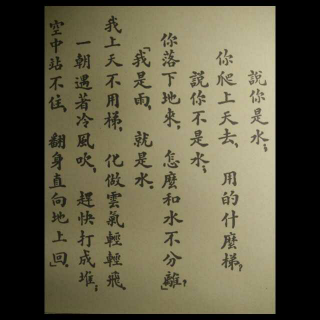 說你是水；
你爬上天去，用的什麼梯，
說你不是水；
你落下地來，怎麼和水不分離，」
「我是雨，就是水，
我上天不用梯，化做雲氣輕輕飛，
一朝遇著冷風吹，趕快打成堆；
空中站不住，翻身直向地上回，」